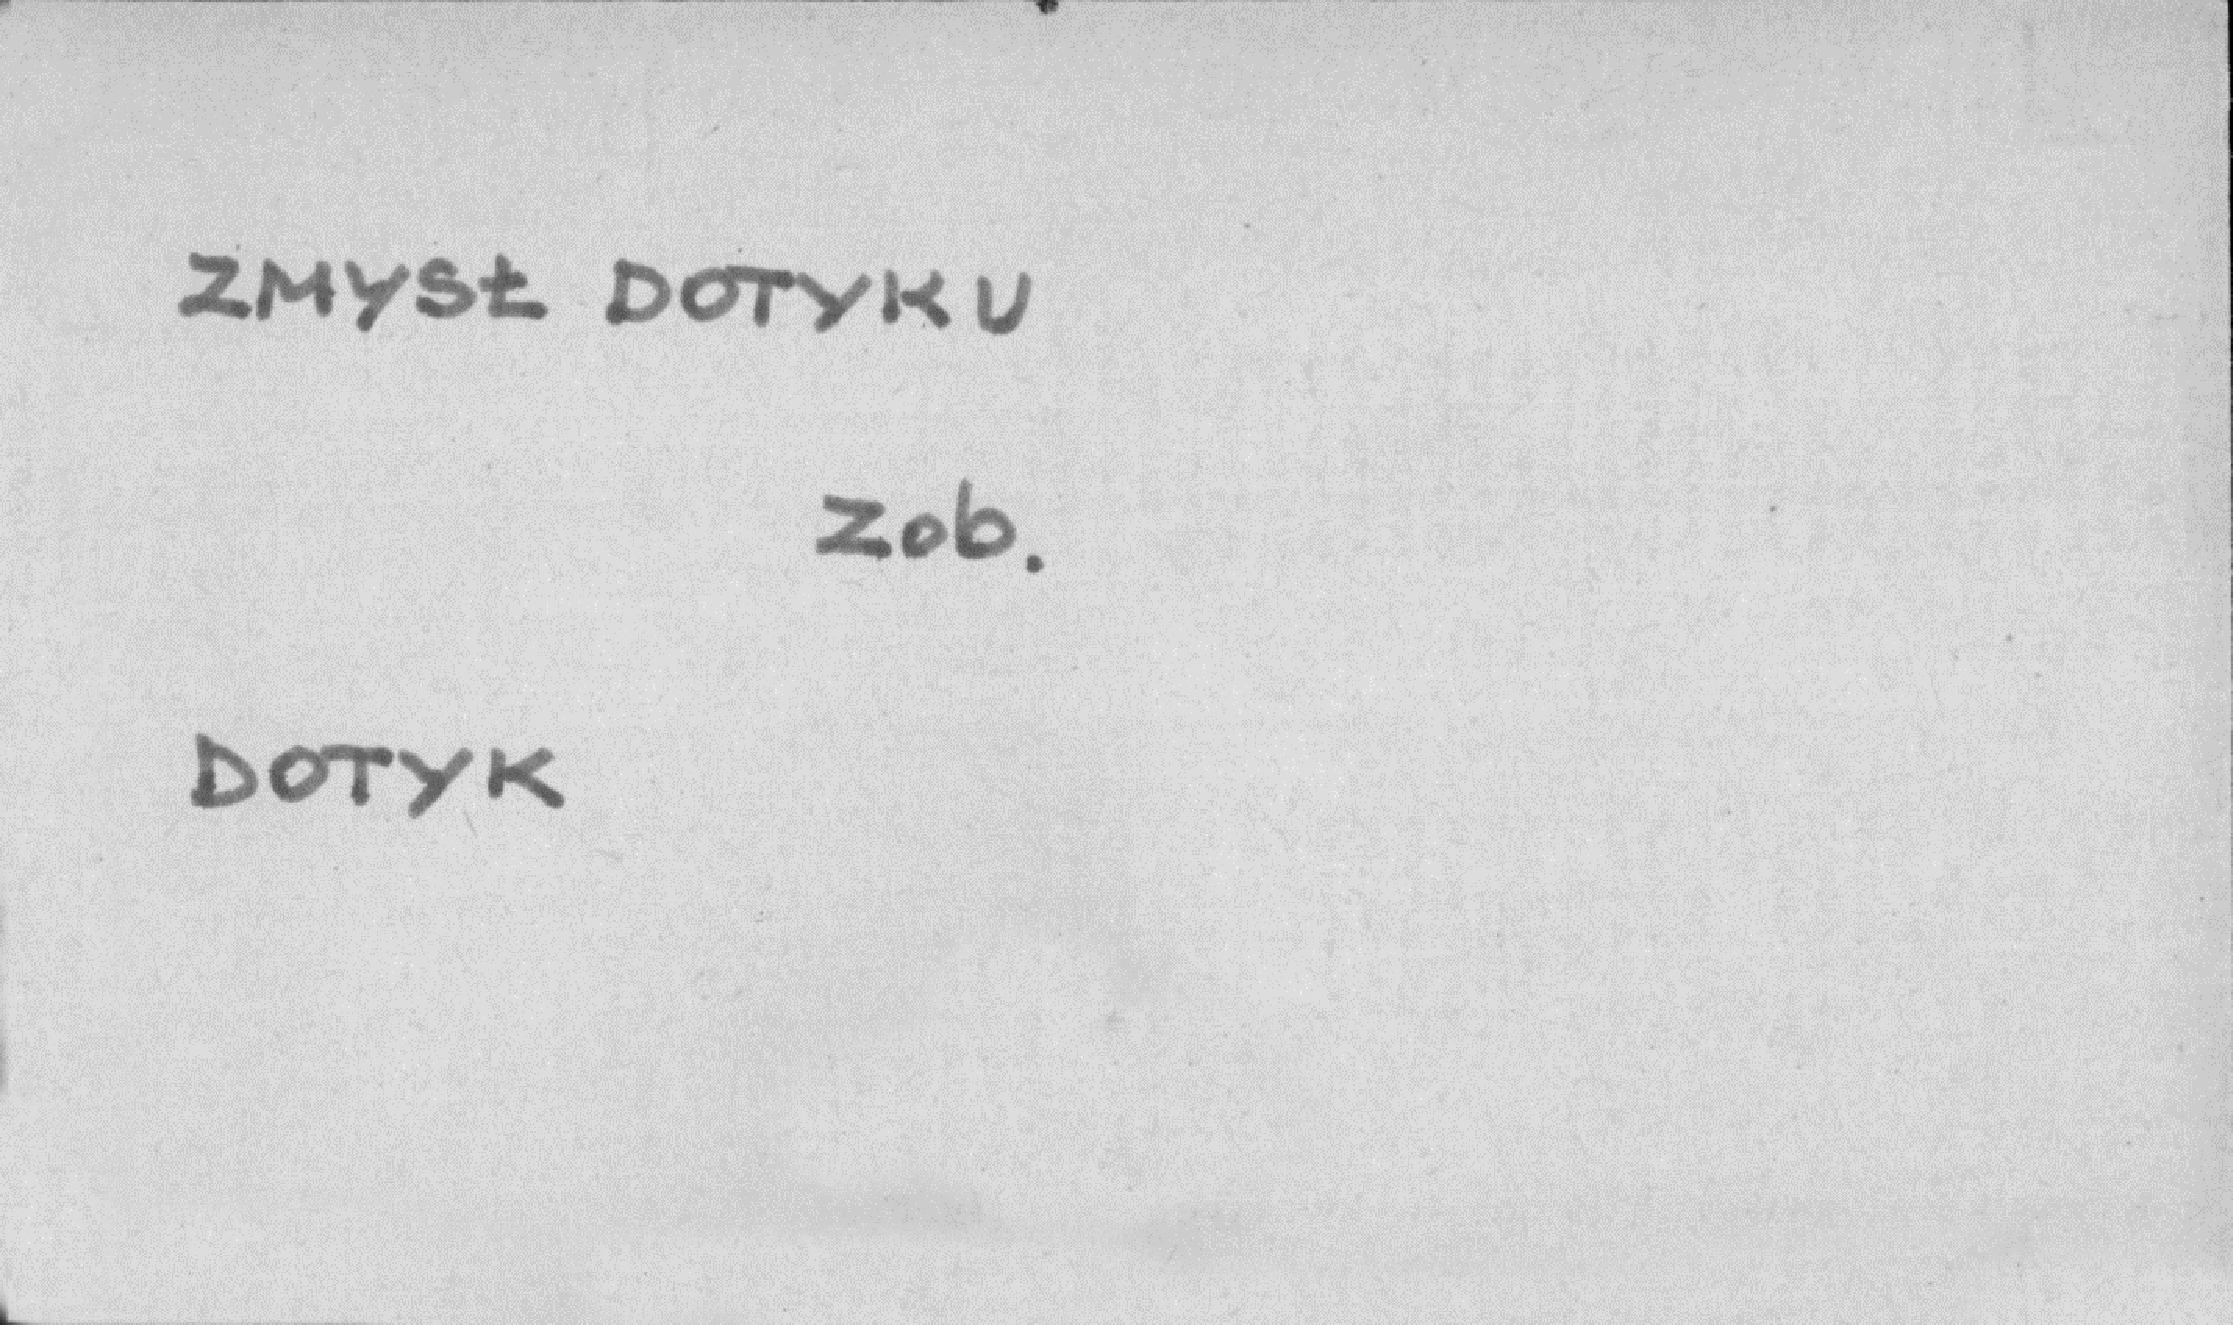 ZMYSŁ DOTYKU
Zob.
DOTYK